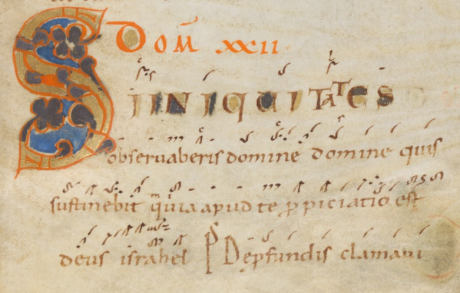 DOM XXII
SI INIQUITATES
observaberis domine domine quis
sustinebit quia apud te ppiciatio est
deus israhel Ps De pfundis clamavi